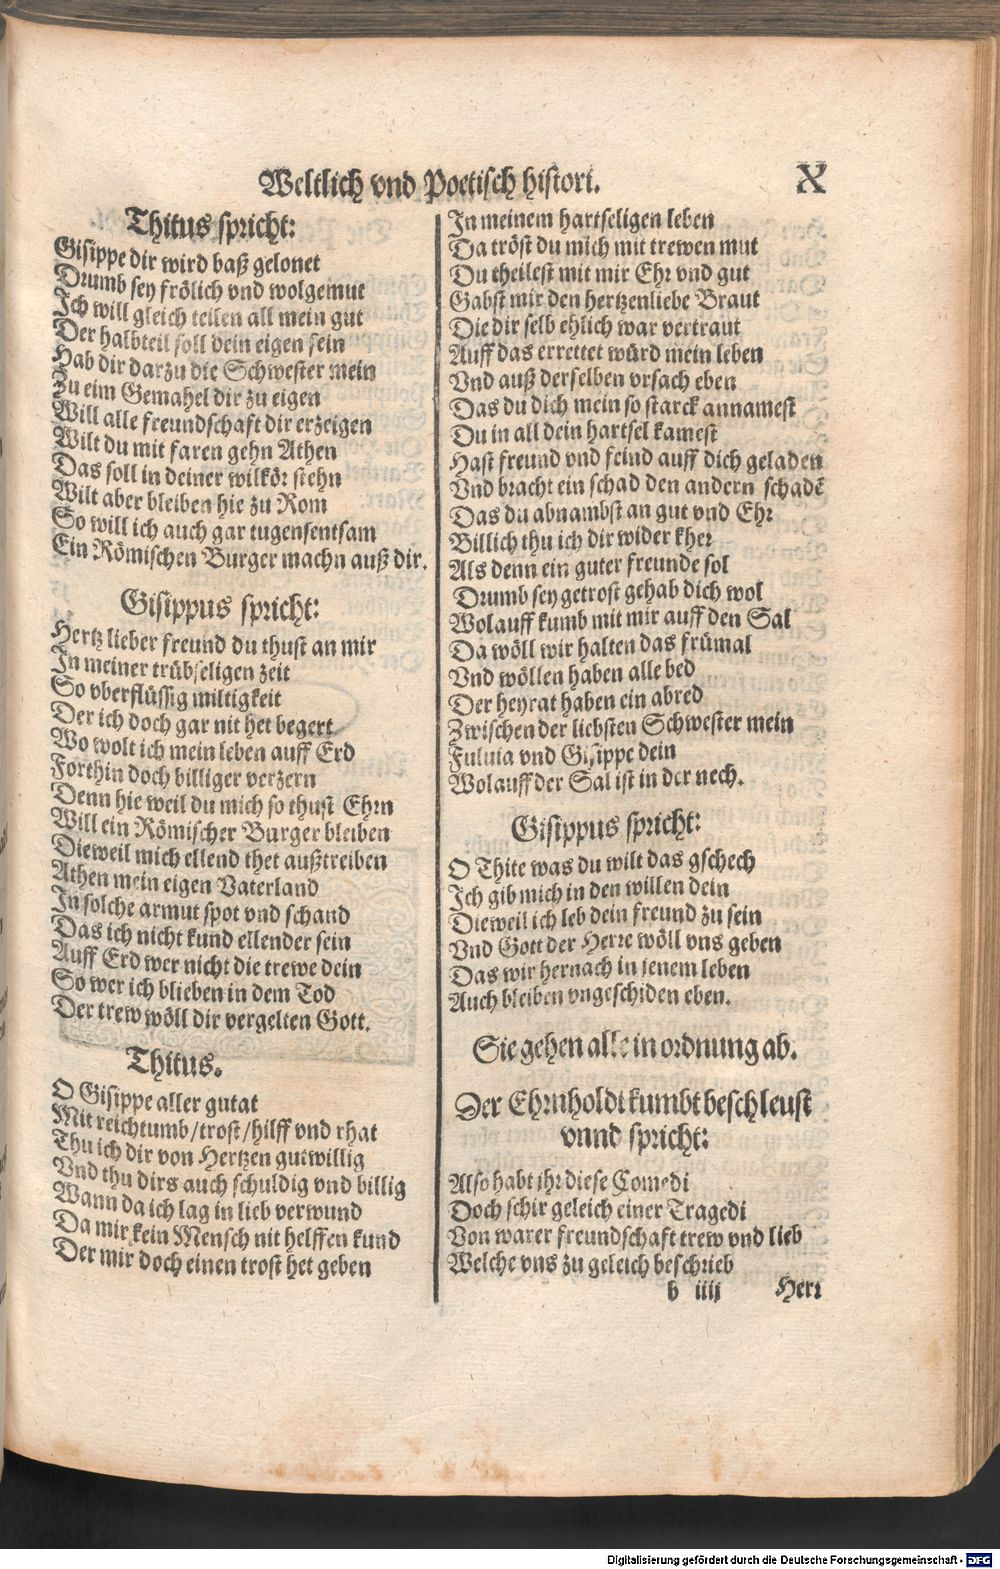 Weltlich vnd Poetisch histori.
X
Thitus spricht:
Gisippe dir wird baß gelonet
Drumb sey frölich vnd wolgemut
Ich will gleich teilen all mein gut
Der halbteil soll dein eigen sein
Hab dir darzu die Schwester mein
Zu eim Gemahel dir zu eigen
Will alle freundschaft dir erzeigen
Wilt du mit faren gehn Athen
Das soll in deiner wilkör stehn
Wilt aber bleiben hie zu Rom
So will ich auch gar tugensentsam
Ein Römischen Burger machn auß dir.
Gisippus spricht:
Hertz lieber freund du thust an mir
In meiner trübseligen zeit
So vberflüssig miltigkeit
Der ich doch gar nit het begert
Wo wolt ich mein leben auff Erd
Forthin doch billiger verzern
Denn hie weil du mich so thust Ehrn
Will ein Römischer Burger bleiben
Dieweil mich ellend thet außtreiben
Athen mein eigen Vaterland
In solche armut spot vnd schand
Das ich nicht kund ellender sein
Auff Erd wer nicht die trewe dein
So wer ich blieben in dem Tod
Der trew wöll dir vergelten Gott.
Thitus.
O Gisippe aller gutat
Mit reichtumb/trost/hilff vnd rhat
Thu ich dir von Hertzen gutwillig
Vnd thu dirs auch schuldig vnd billig
Wann da ich lag in lieb verwund
Da mir kein Mensch nit helffen kund
Der mir doch einen trost het geben
In meinem hartseligen leben
Da tröst du mich mit trewen mut
Du theilest mit mir Ehr vnd gut
Gabst mir den hertzenliebe Braut
Die dir selb ehlich war vertraut
Auff das errettet würd mein leben
Vnd auß derselben vrsach eben
Das du dich mein so starck annamest
Du in all dein hartsel kamest
Hast freund vnd feind auff dich geladen
Vnd bracht ein schad den andern schadē
Das du abnambst an gut vnd Ehr
Billich thu ich dir wider kher
Als denn ein guter freunde sol
Drumb sey getrost gehab dich wol
Wolauff kumb mit mir auff den Sal
Da wöll wir halten das frümal
Vnd wöllen haben alle bed
Der heyrat haben ein abred
Zwischen der liebsten Schwester mein
Fuluia vnd Gisippe dein
Wolauff der Sal ist in der nech.
Gisippus spricht:
O Thite was du wilt das gschech
Ich gib mich in den willen dein
Dieweil ich leb dein freund zu sein
Vnd Gott der Herre wöll vns geben
Das wir hernach in jenem leben
Auch bleiben vngeschiden eben.
Sie gehen alle in ordnung ab.
Der Ehrnholdt kumbt beschleust
vnnd spricht:
Also habt ihr diese Comedi
Doch schir geleich einer Tragedi
Von warer freundschaft trew vnd lieb
Welche vns zu geleich beschrieb
b iiij Herr
Digitalisierung gefördert durch die Deutsche Forschungsgemeinschaft - DFG